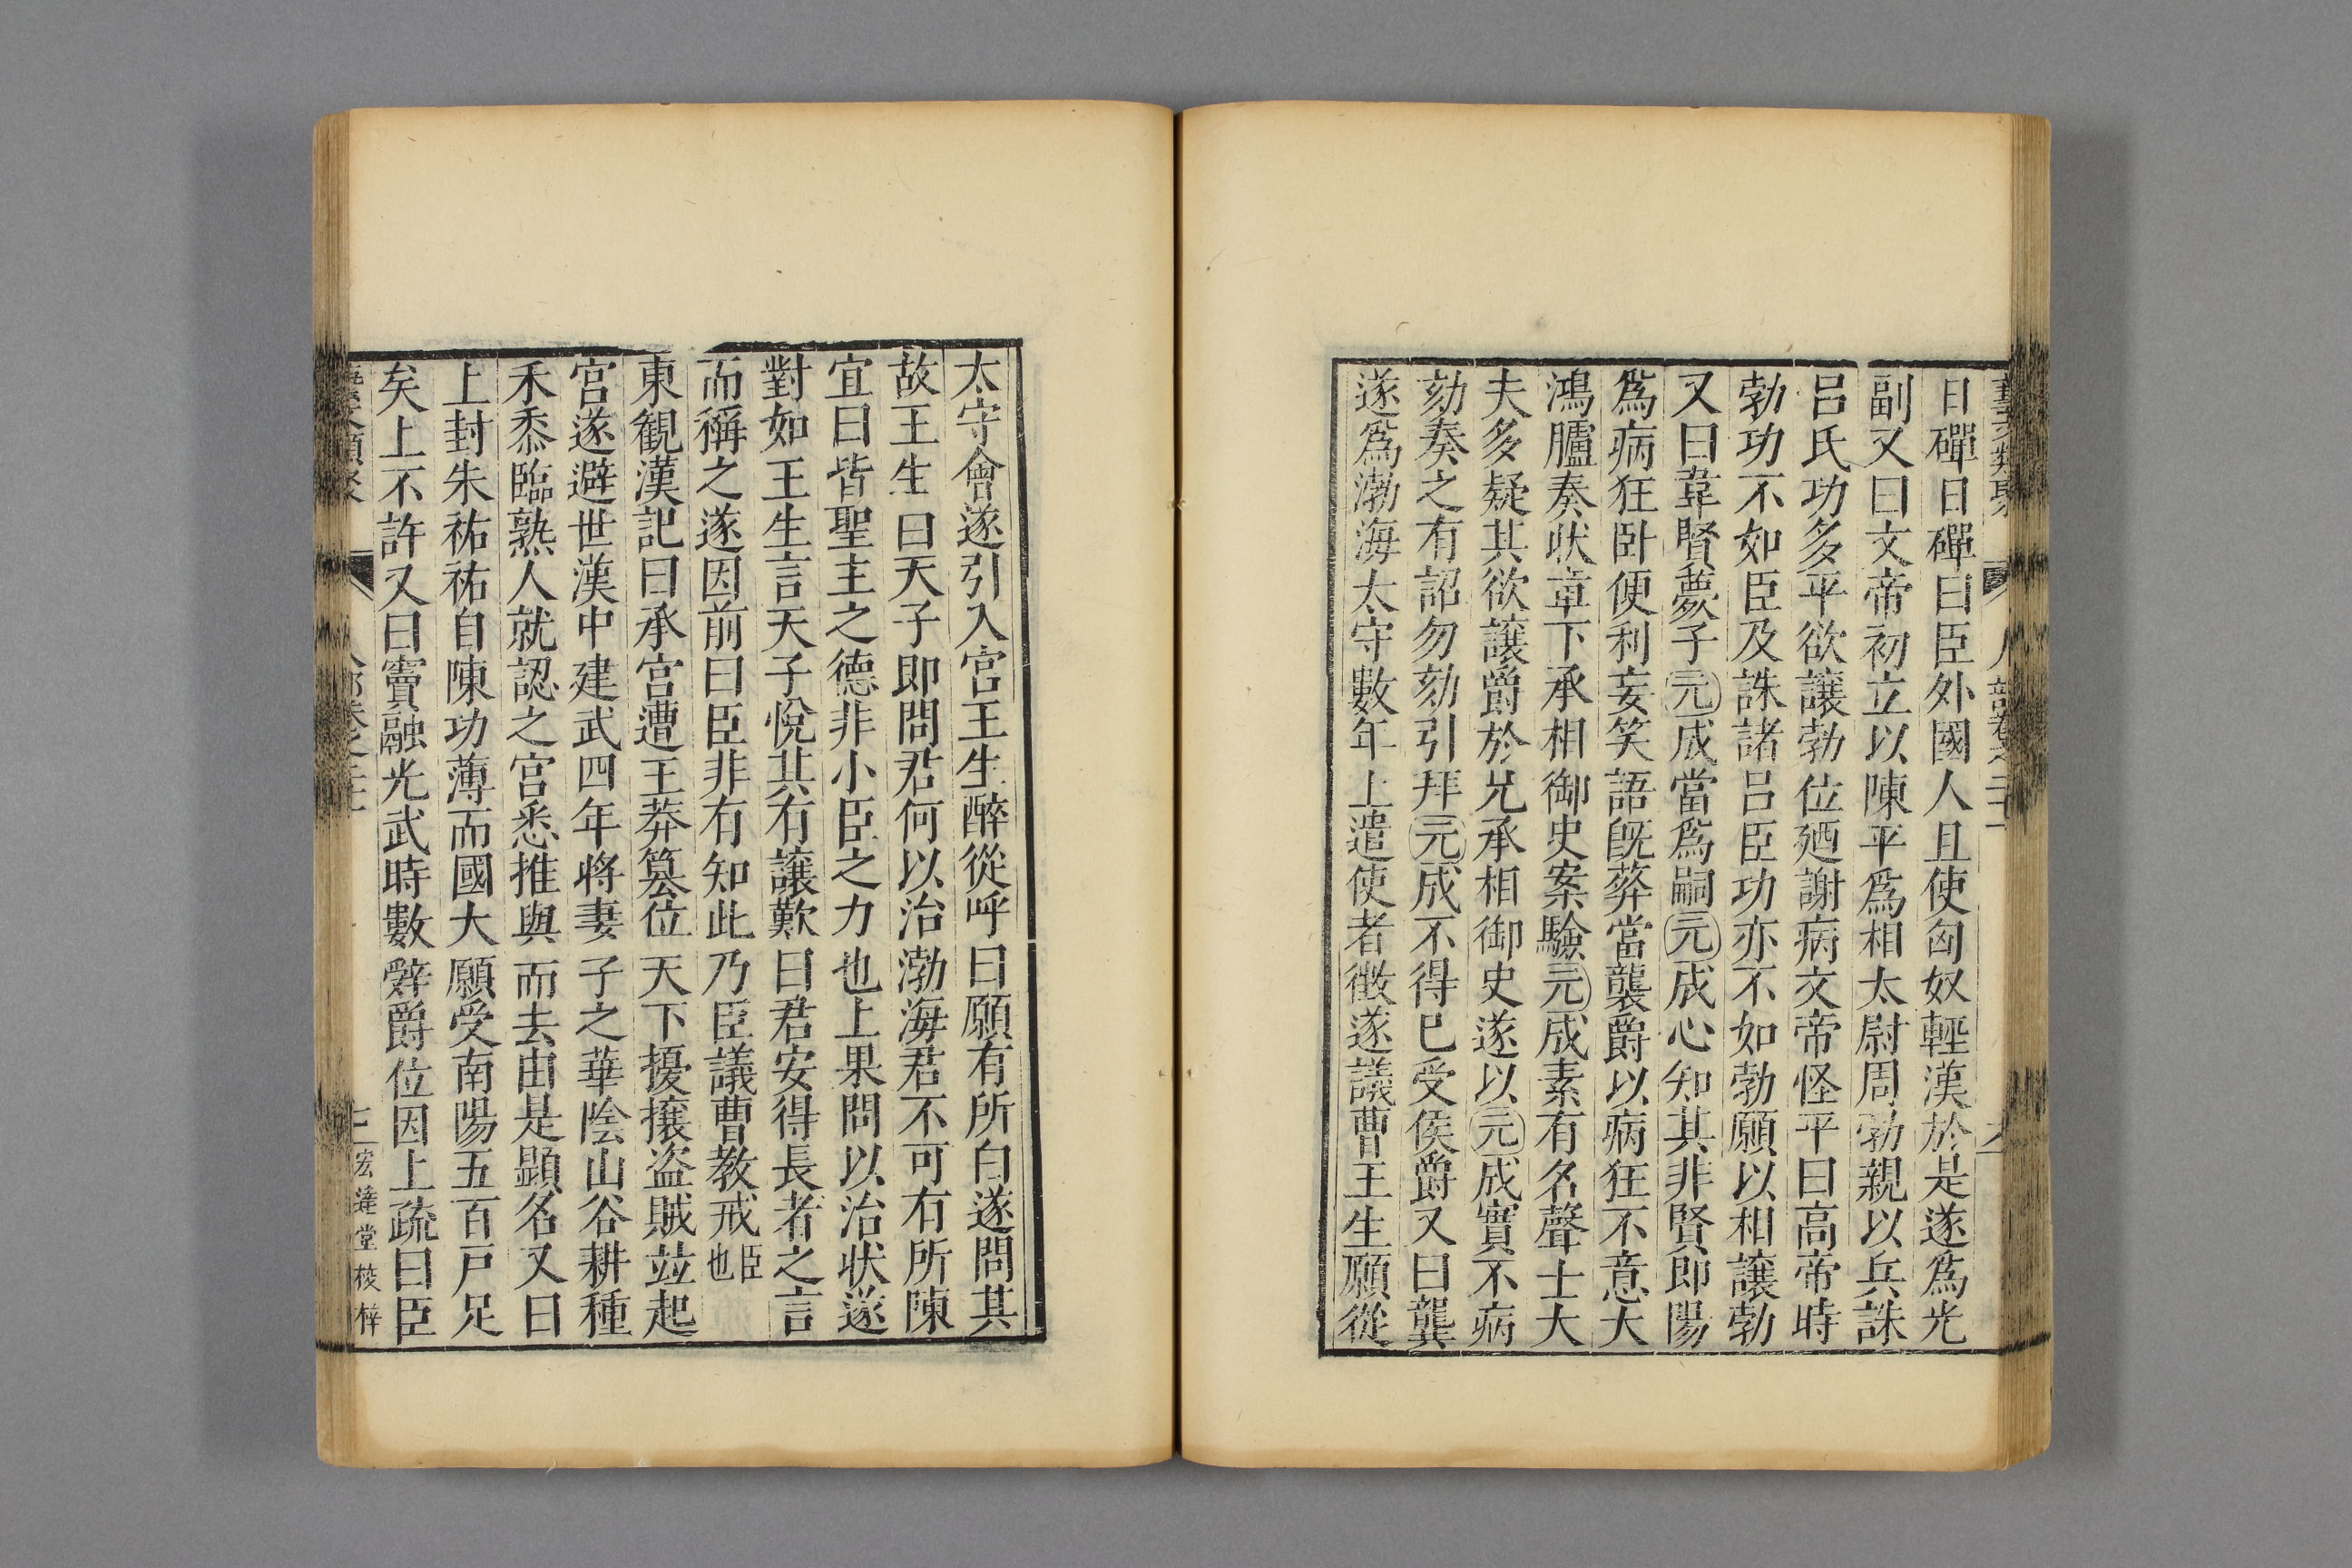 日磾日磾曰臣外國人且使匈奴輕漢於是遂爲光
副又曰文帝初立以陳平爲相太尉周勃親以兵誅
吕氏功多平欲讓勃位廼謝病文帝怪平曰高帝時
勃功不如臣及誅諸吕臣功亦不如勃願以相讓勃
又曰韋賢薨子元成當爲嗣元成心知其非賢即陽
爲病狂卧便利妄笑語旣葬當襲爵以病狂不意大
鴻臚奏狀章下承相御史案驗元成素有名聲士大
夫多疑其欲讓爵於兄承相御史遂以元成實不病
劾奏之有詔勿劾引拜元成不得已受侯爵又曰龔
遂爲渤海太守數年上遣使者徴遂議曹王生願從
太守會遂引入宮王生醉從呼曰願有所白遂問其
故王生曰天子即問君何以治渤海君不可有所陳
宜曰皆聖主之德非小臣之力也上果問以治状遂
對如王生言天子悅其有讓歎曰君安得長者之言
而稱之遂因前曰臣非有知此乃臣議曹教戒臣也
東觀漢記曰承宮遭王莽篡位天下擾攘盗賊竝起
宮遂避世漢中建武四年將妻子之華陰山谷耕種
禾黍臨熟人就認之宮悉推與而去由是顯名又曰
上封朱祐祐自陳功薄而國大願受南陽五百戸足
矣上不許又曰竇融光武時數辤爵位因上疏曰臣
三宏達堂校梓